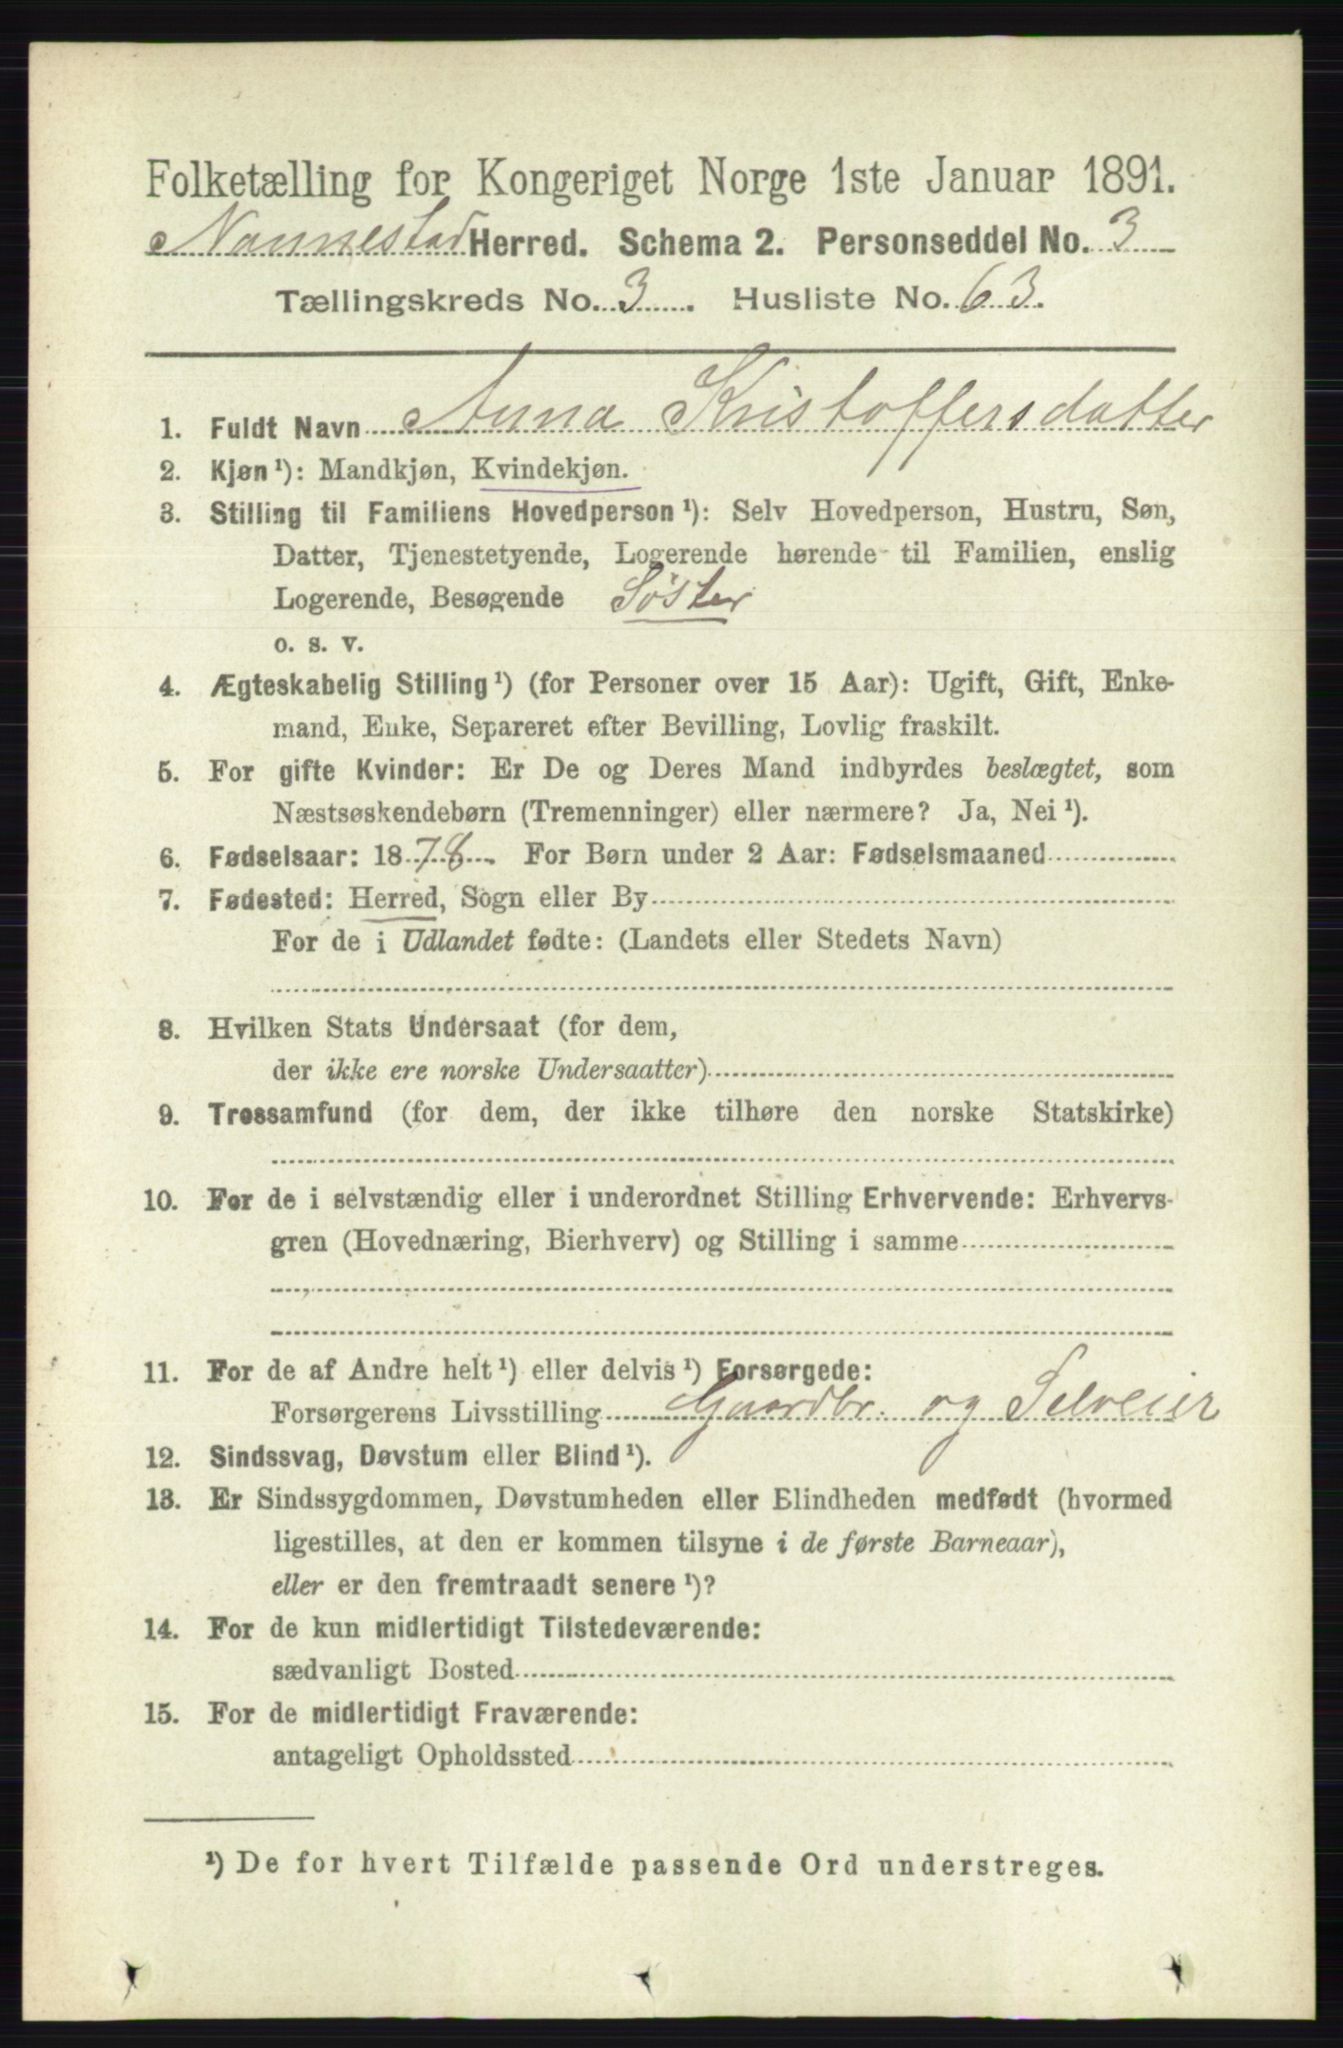 Folketælling for Kongeriget Norge 1ste Januar 1891.
Nannestad Herred. Schema 2. Personseddel No. 3
Tællingskreds No. 3. Husliste No. 63.
1. Fuldt Navn Anna Kristoffersdatter
2. Kjøn ¹): Mandkjøn, Kvindekjøn.
3. Stilling til Familiens Hovedperson ¹): Selv Hovedperson, Hustru, Søn,
Datter, Tjenestetyende, Logerende hørende til Familien, enslig
Logerende, Besøgende Søster
o. s. v.
4. Ægteskabelig Stilling ¹) (for Personer over 15 Aar): Ugift, Gift, Enke-
mand, Enke, Separeret efter Bevilling, Lovlig fraskilt.
5. For gifte Kvinder: Er De og Deres Mand indbyrdes beslægtet, som
Næstsøskendebørn (Tremenninger) eller nærmere? Ja, Nei ¹).
6. Fødselsaar: 1878. For Børn under 2 Aar: Fødselsmaaned
7. Fødested: Herred, Sogn eller By
For de i Udlandet fødte: (Landets eller Stedets Navn)
8. Hvilken Stats Undersaat (for dem,
der ikke ere norske Undersaatter)
9. Trossamfund (for dem, der ikke tilhøre den norske Statskirke)
10. For de i selvstændig eller i underordnet Stilling Erhvervende: Erhvervs-
gren (Hovednæring, Bierhverv) og Stilling i samme
11. For de af Andre helt ¹) eller delvis ¹) Forsørgede:
Forsørgerens Livsstilling Gaardbr. og Selveier
12. Sindssvag, Døvstum eller Blind ¹).
13. Er Sindssygdommen, Døvstumheden eller Blindheden medfødt (hvormed
ligestilles, at den er kommen tilsyne i de første Barneaar),
eller er den fremtraadt senere ¹)?
14. For de kun midlertidigt Tilstedeværende:
sædvanligt Bosted
15. For de midlertidigt Fraværende:
antageligt Opholdssted
¹) De for hvert Tilfælde passende Ord understreges.